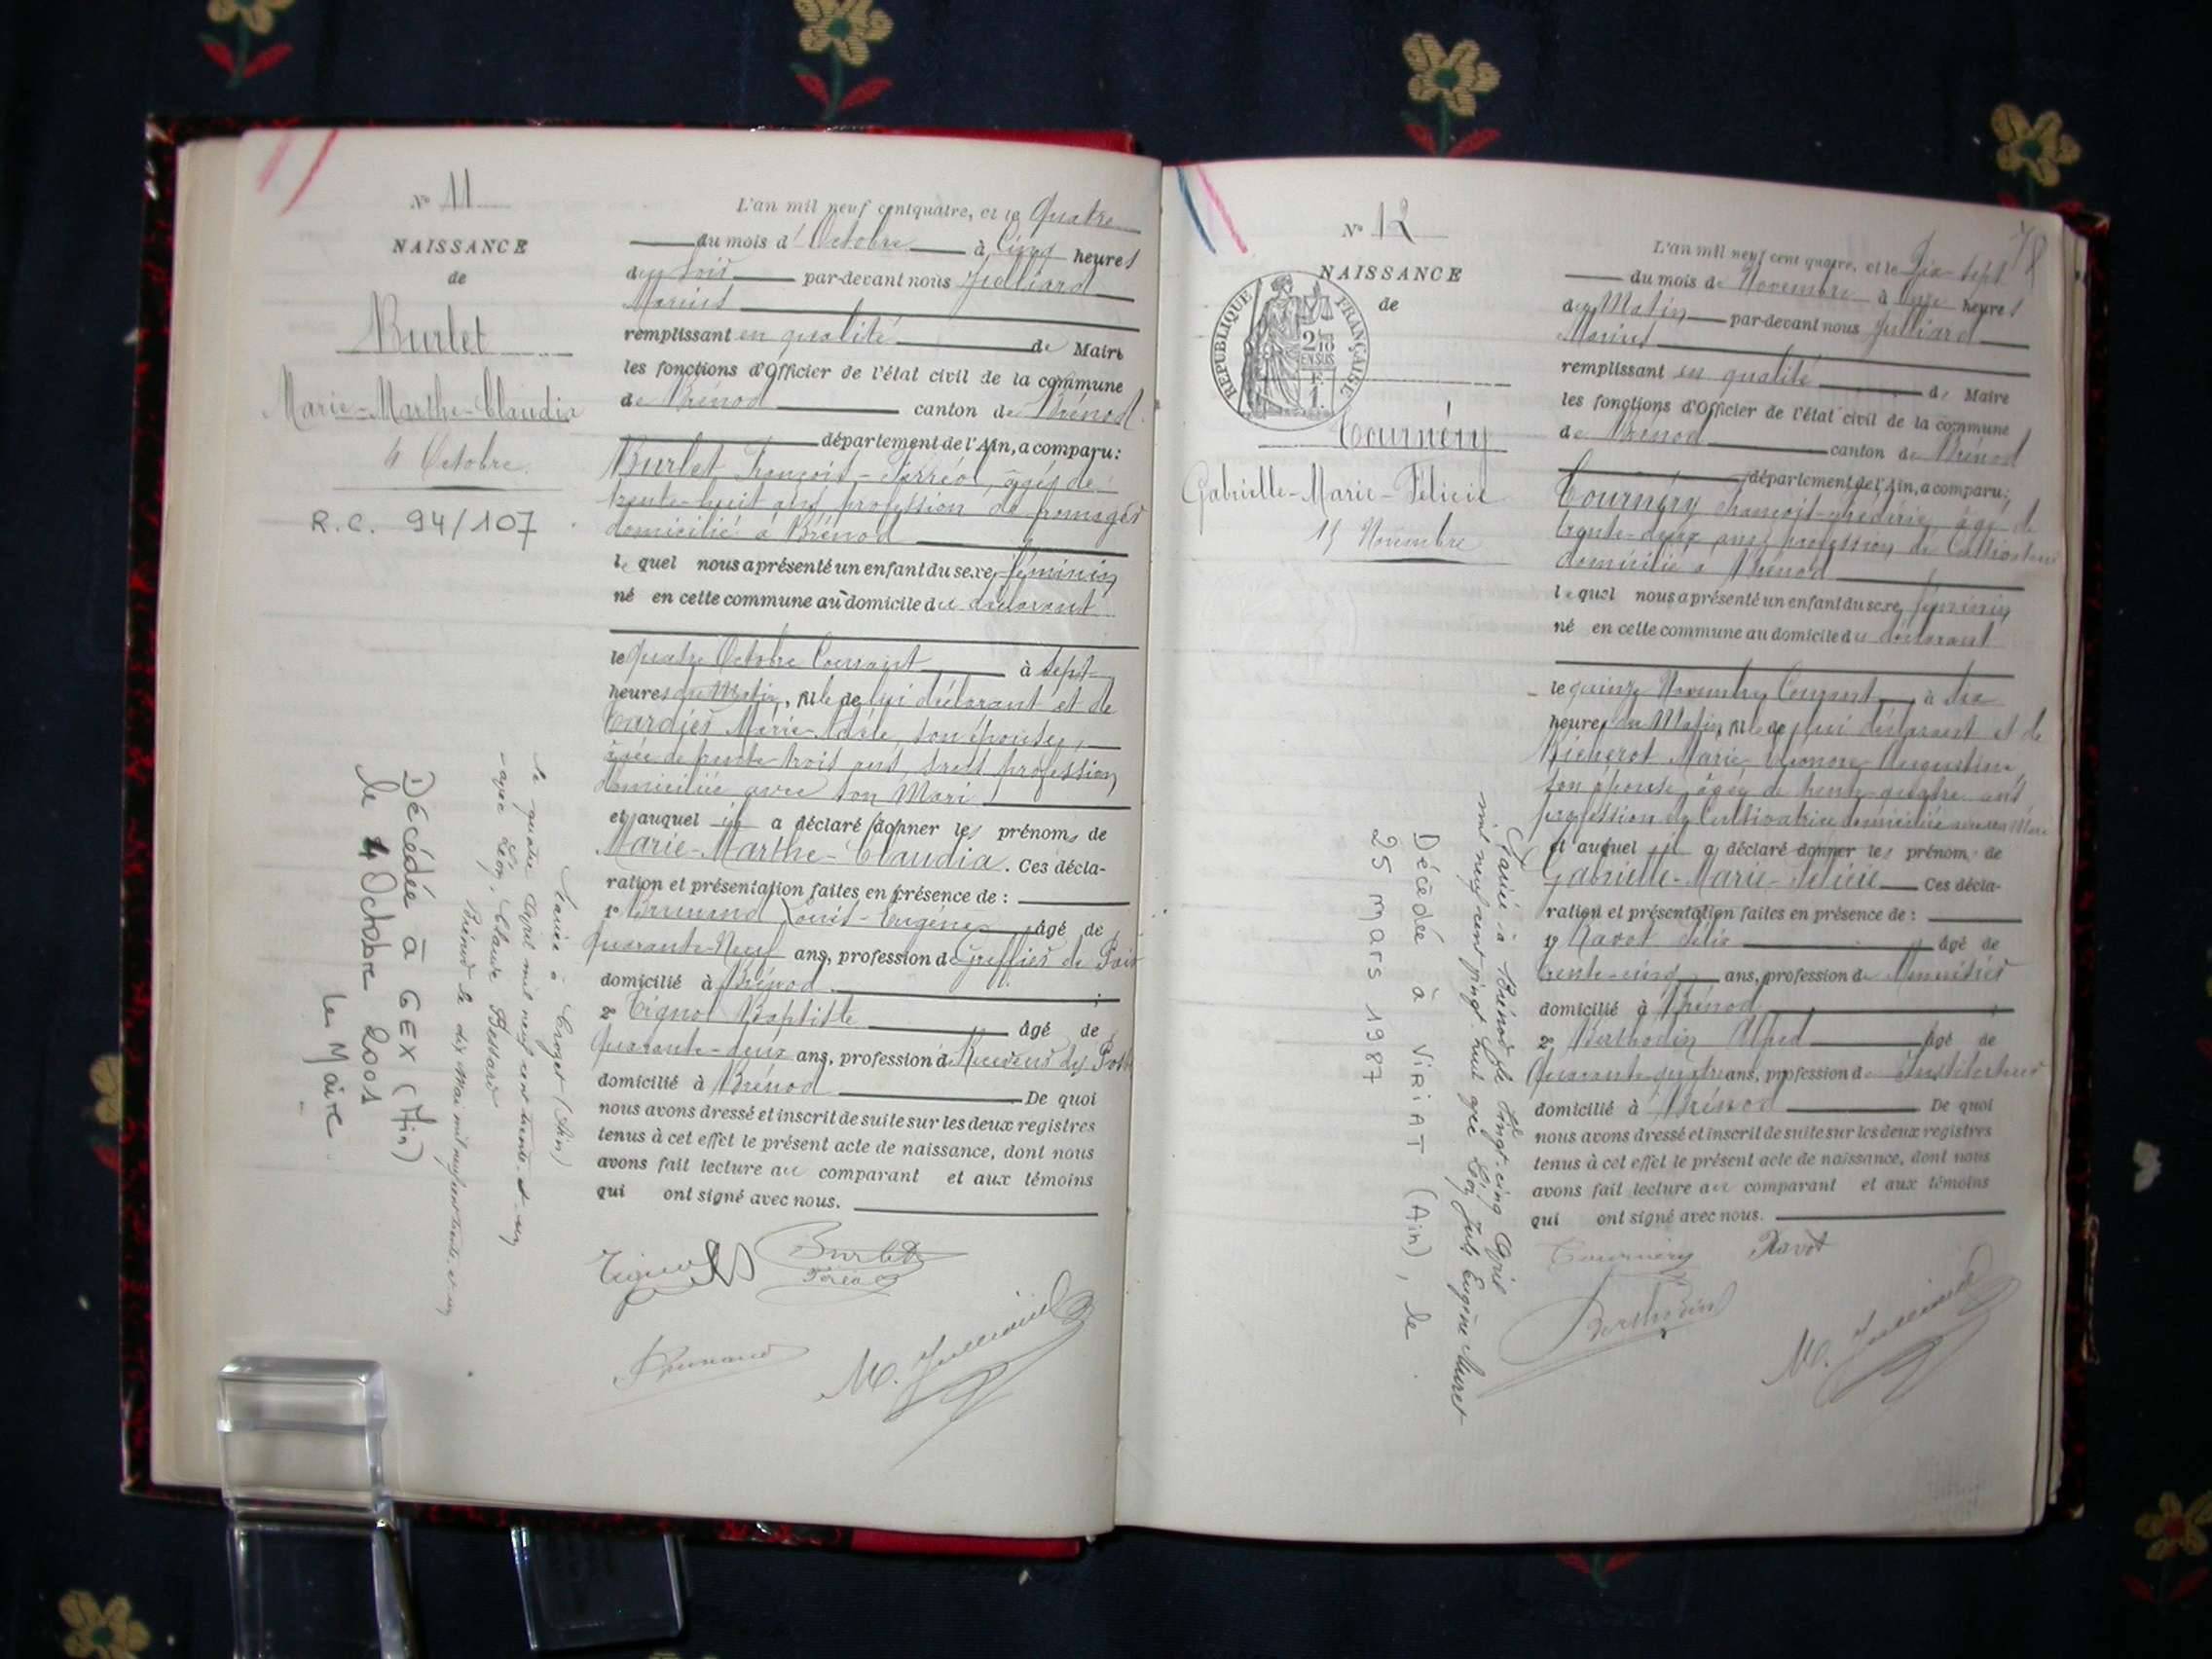 N° 11
NAISSANCE
de
Burlet
Marie-Marthe-Claudia
4 Octobre.
R.C. 94/107
L'an mil neuf cent quatre, et le Quatre
du mois d'Octobre à Cinq heures
du Soir par-devant nous Julliard
Marius
remplissant en qualité de Maire
les fonctions d'Officier de l'état civil de la commune
de Brénod canton de Brénod
département de l'Ain, a comparu:
Burlet François-Ferréol, âgé de
trente-huit ans profession de fromager
domicilié à Brénod
lequel nous a présenté un enfant du sexe féminin
né en cette commune au domicile du déclarant
le quatre Octobre Courant à Sept
heures du Matin, fille de lui déclarant et de
Marie-Adèle, son épouse,
âgée de trente-trois ans, sans profession,
domiciliée avec son Mari
et auquel il a déclaré donner les prénoms de
Marie-Marthe-Claudia. Ces décla-
ration et présentation faites en présence de :
1° Brunand Louis-Eugène âgé de
Quarante-Neuf ans, profession de Greffier de Paix
domicilié à Brénod ;
2° Tignol Baptiste âgé de
Quarante-deux ans, profession de Receveur des Postes
domicilié à Brénod De quoi
nous avons dressé et inscrit de suite sur les deux registres
tenus à cet effet le présent acte de naissance, dont nous
avons fait lecture au comparant et aux témoins
qui ont signé avec nous.
Burlet
Brunand
M. Julliard
Mariée à (Ain)
le quatre Avril mil neuf cent trente-et-un
avec Léon, Claude Bessard
Brénod le dix Mai mil neuf cent trente et un
Décédée à GEX (Ain)
le 4 Octobre 2001
Le Maire
N° 12
NAISSANCE
de
REPUBLIQUE FRANÇAISE
2/10
EN SUS
1 F.
Tournéry
Gabrielle-Marie-Félicie
15 Novembre
78
L'an mil neuf cent quatre, et le Dix-Sept
du mois de Novembre à Onze heures
du Matin par-devant nous Julliard
Marius
remplissant en qualité de Maire
les fonctions d'Officier de l'état civil de la commune
de Brénod canton de Brénod
département de l'Ain, a comparu:
Tournéry François-Frédéric, âgé de
trente-deux ans, profession de Cultivateur
domicilié à Brénod
lequel nous a présenté un enfant du sexe féminin
né en cette commune au domicile du déclarant
le quinze Novembre Courant à Six
heures du Matin, fille de lui déclarant et de
Marie-Eléonore Augustine,
son épouse, âgée de trente-quatre ans,
profession de Cultivatrice domiciliée avec son Mari
et auquel il a déclaré donner les prénoms de
Gabrielle-Marie-Félicie Ces décla-
ration et présentation faites en présence de :
1° Ravot Félix âgé de
trente-cinq ans, profession de Menuisier
domicilié à Brénod ;
2° Berthodin Alfred âgé de
Quarante-quatre ans, profession de Instituteur
domicilié à Brénod De quoi
nous avons dressé et inscrit de suite sur les deux registres
tenus à cet effet le présent acte de naissance, dont nous
avons fait lecture au comparant et aux témoins
qui ont signé avec nous.
Tournéry Ravot
Berthodin
M. Julliard
Mariée à Brénod le vingt-cinq Avril
mil neuf cent vingt-huit avec Léon Jules Eugène Muret
Décédée à VIRIAT (Ain), le
25 mars 1987